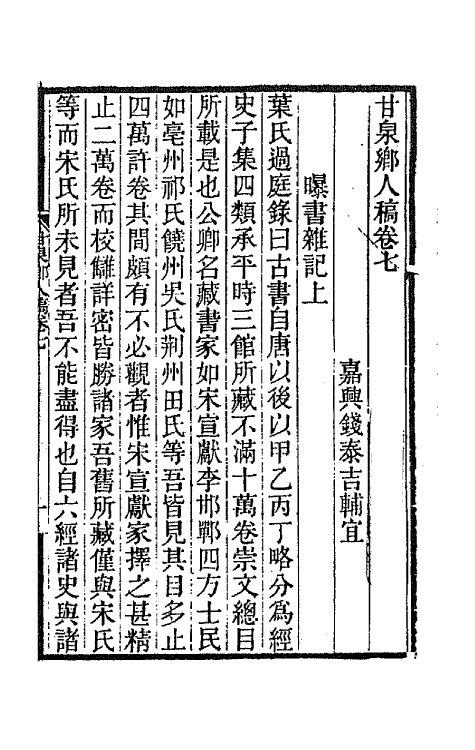 甘泉鄉人稿卷七
嘉興錢泰吉輔宜
曝書雜記上
葉氏過庭錄曰古書自唐以後以甲乙丙丁略分爲經
史子集四類承平時三館所藏不滿十萬卷崇文總目
所載是也公卿名藏書家如宋宣獻李邯鄲四方士民
如亳州祁氏饒州吳氏荆州田氏等吾皆見其目多止
四萬許卷其間頗有不必觀者惟宋宣獻家擇之甚精
止二萬卷而校讎詳密皆勝諸家吾舊所藏僅與宋氏
等而宋氏所未見者吾不能盡得也自六經諸史與諸
甘泉鄉人稿卷七
一